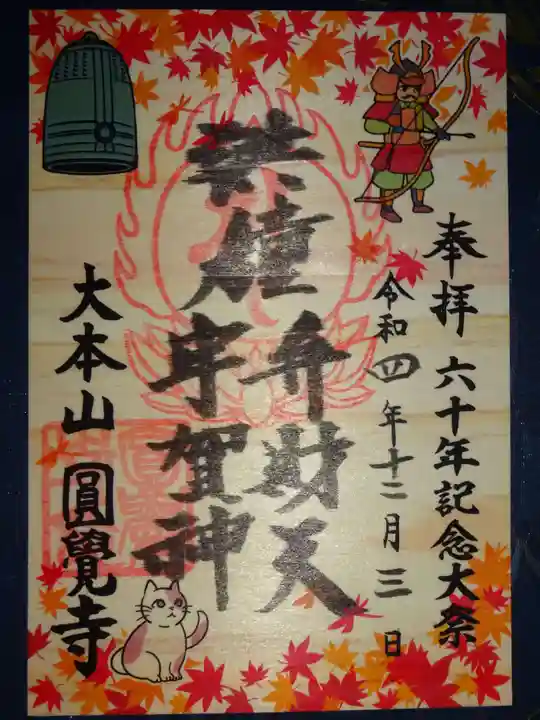 奉拝 六十年記念大祭
令和四年十二月三日
弁財天
宇賀神
大本山 圓覺寺